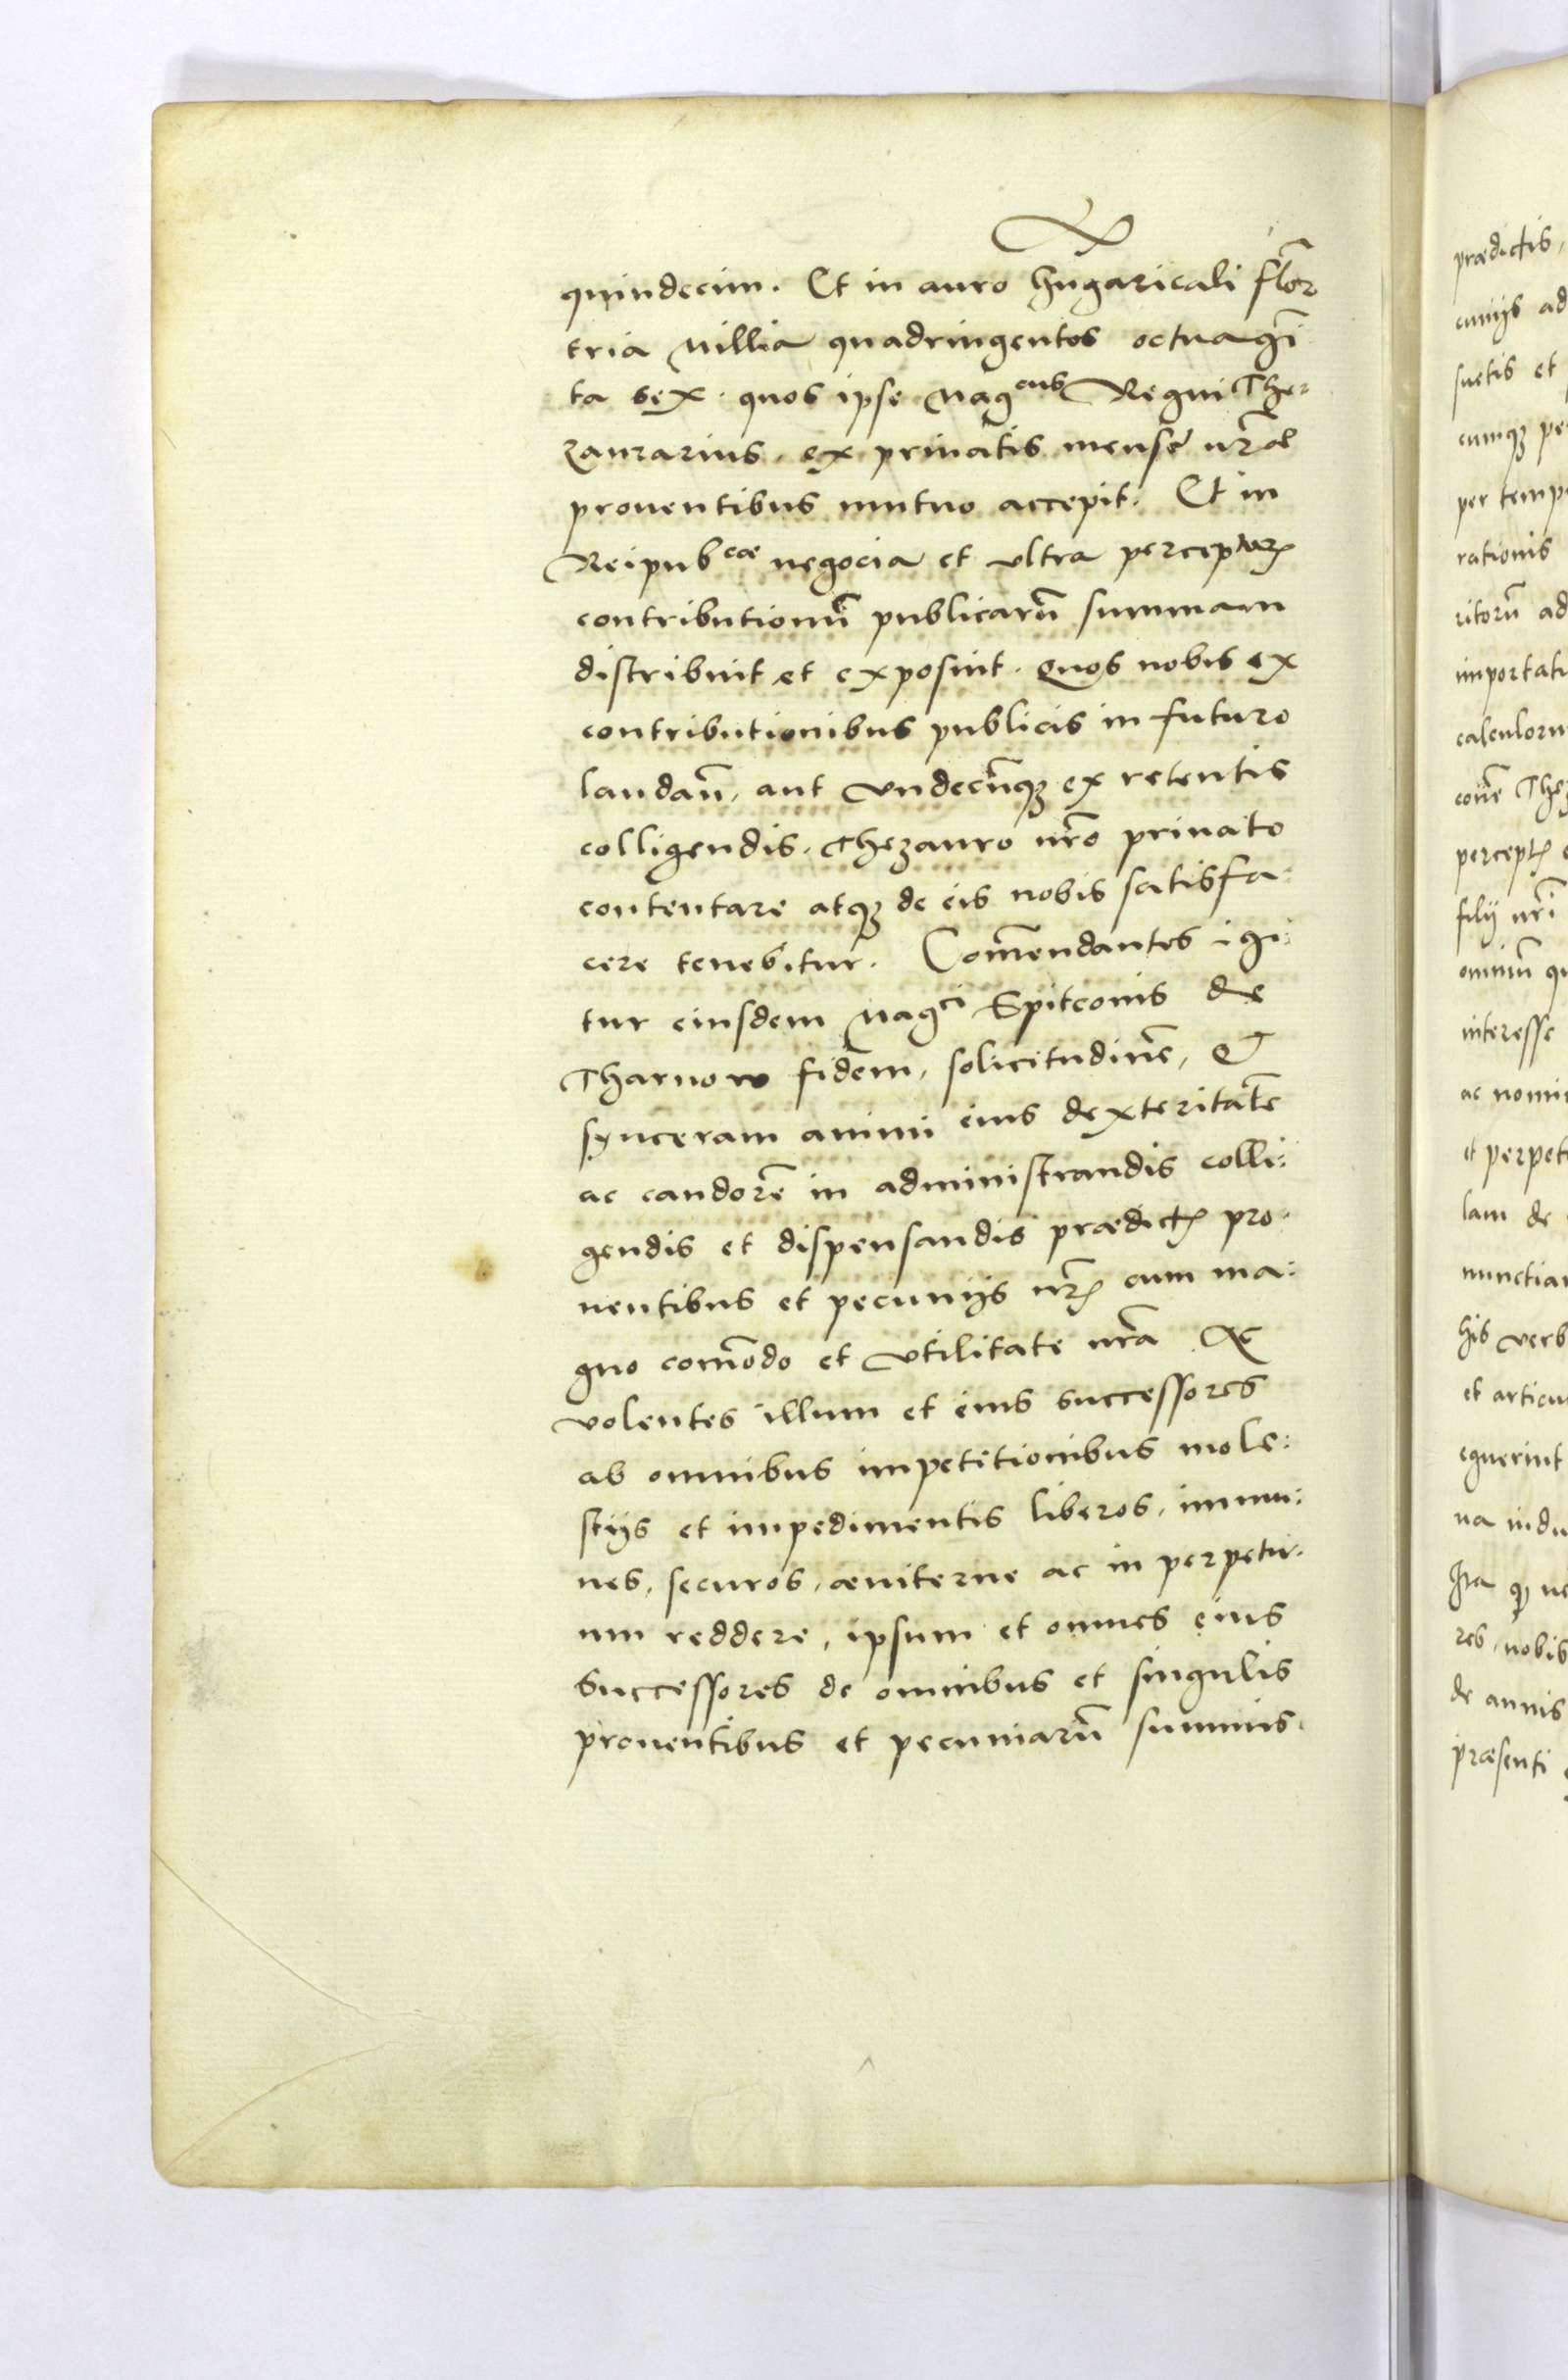 quindecim. Et in auro hungaricali flor̃
tria Millia quadringentos octuagĩ
ta sex. quos ipse Mag^cus Regni The:
zaurarius, ex priuatis mensæ nr̃æ
prouentibus mutuo accepit. Et in
Reipub^cæ negocia et vltra perceptar̃
contributionũ publicarũ summam
distribuit et exposuit. quos nobis ex
contributionibus publicis in futuro
laudañ, aut vndecũq₃ ex retentis
colligendis, Thezauro nr̃o priuato
contentare atq₃ de eis nobis satisfa:
cere tenebitur. Com̃endantes igi:
tur eiusdem Mag^ci Spitconis de
Tharnow fidem, solicitudinẽ, et
synceram animi eius dexteritatẽ
ac candorẽ in administrandis colli:
gendis et dispensandis prædict̃ pro:
uentibus et pecunijs nr̃ cum ma:
gno com̃odo et vtilitate nr̃a Ac
volentes illum et eius successores
ab omnibus impetitionibus mole:
stijs et impedimentis liberos, immu:
nes, securos, æuiterne ac in perpetu:
um reddere, ipsum et omnes eius
successores de omnibus et singulis
prouentibus et pecuniarũ summis.
prædictis,
cunijs ad
suetis et
cumq₃ pe
per temp
rationis
ritorũ ad
importati
calculoru
conẽ The
percept̃
filij nr̃i
omniũ qu
interesse
ac nomi
et perpet
lam de
nunctia
his verb
et articu
eguerint
ua indu
Ita q̃ ue
res, nobis
de annis
præsenti